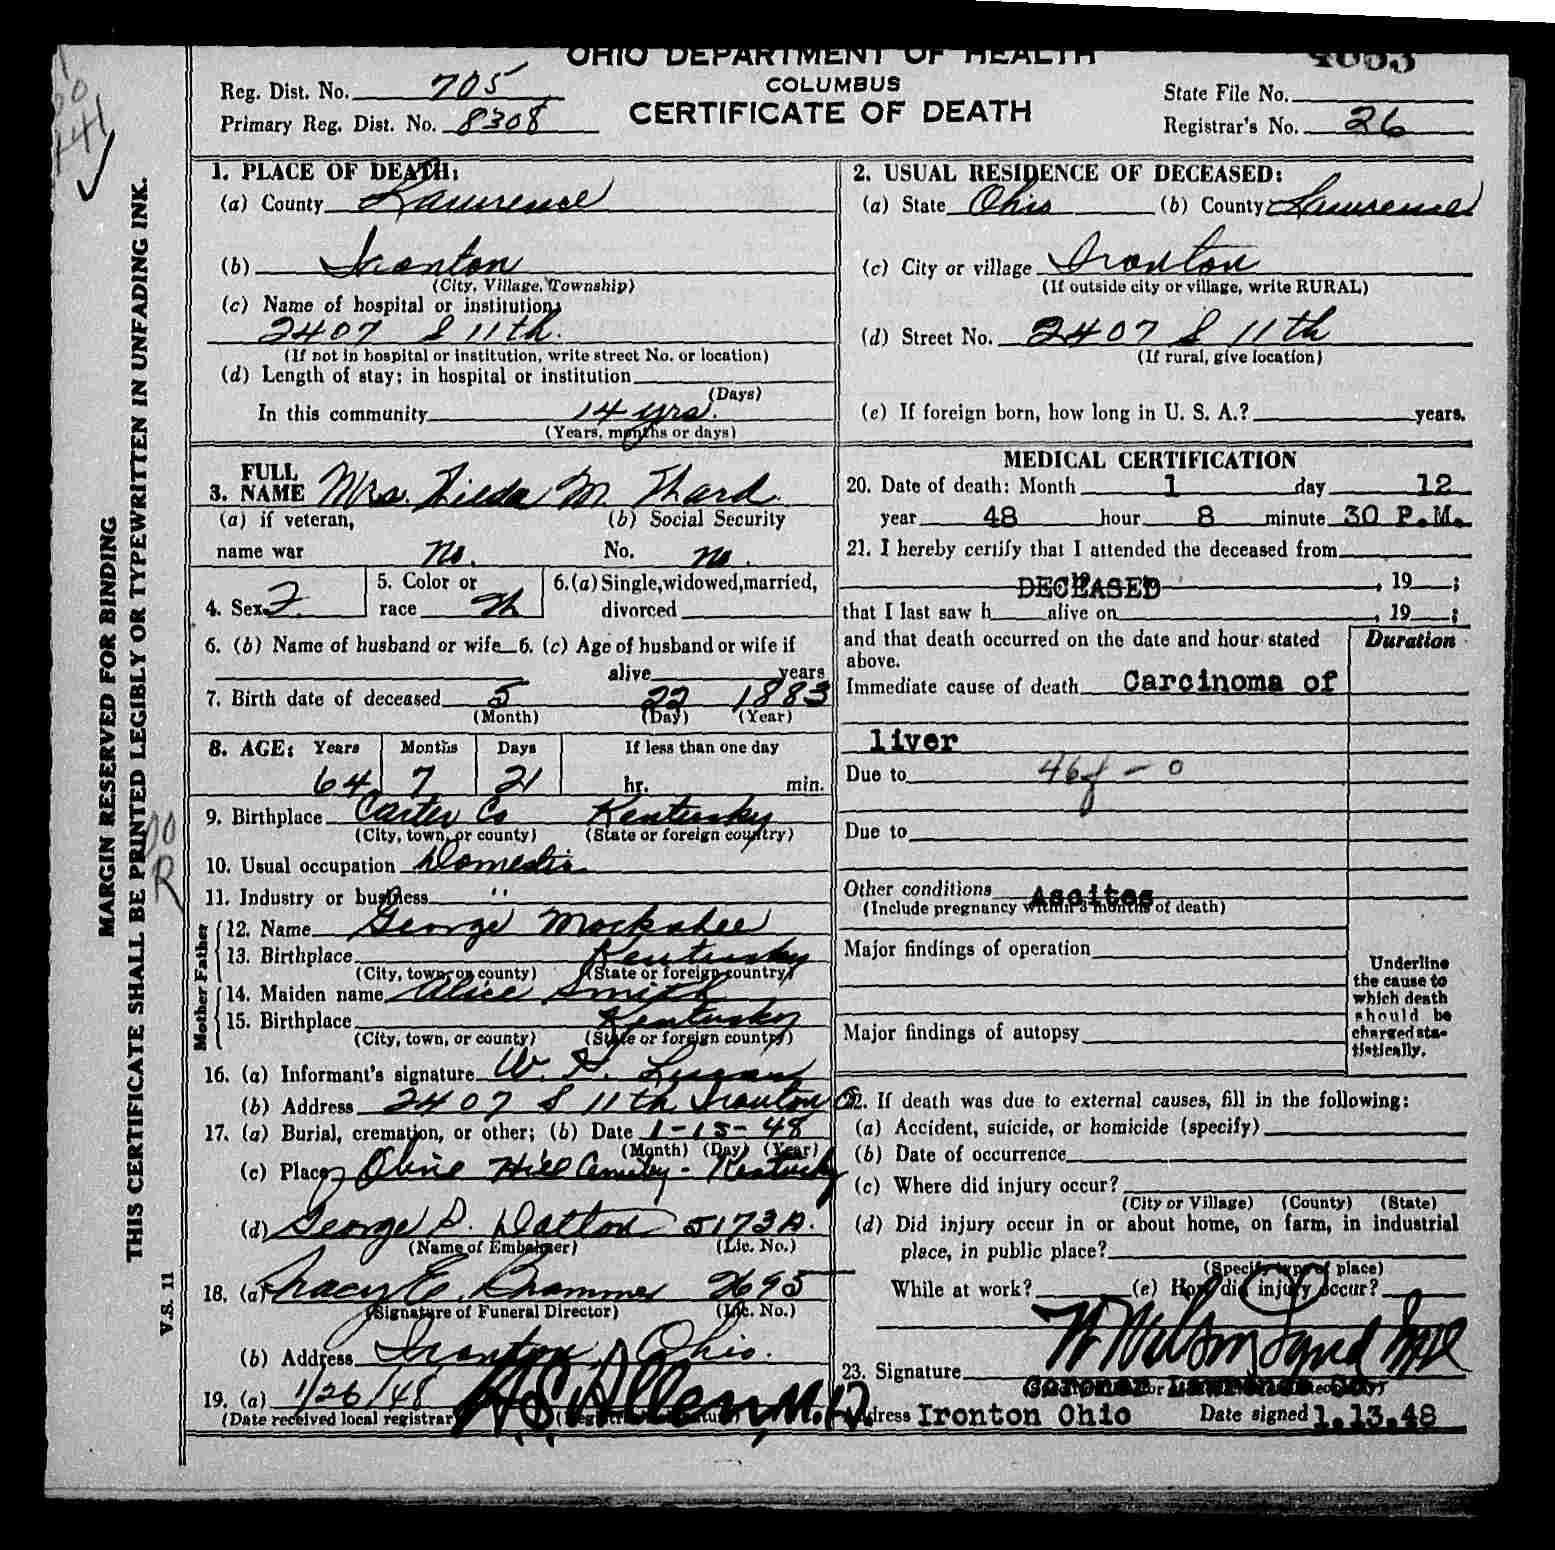 OHIO DEPARTMENT OF HEALTH
COLUMBUS
CERTIFICATE OF DEATH
4053
Reg. Dist. No. 705
Primary Reg. Dist. No. 8308
State File No.
Registrar's No. 26
MARGIN RESERVED FOR BINDING
THIS CERTIFICATE SHALL BE PRINTED LEGIBLY OR TYPEWRITTEN IN UNFADING INK.
V.S. 11
1. PLACE OF DEATH:
(a) County Lawrence
(b) Ironton
(City, Village, Township)
(c) Name of hospital or institution:
2407 S 11th.
(If not in hospital or institution, write street No. or location)
(d) Length of stay: in hospital or institution
(Days)
In this community 14 yrs.
(Years, months or days)
2. USUAL RESIDENCE OF DECEASED:
(a) State Ohio (b) County Lawrence
(c) City or village Ironton
(If outside city or village, write RURAL)
(d) Street No. 2407 S 11th
(If rural, give location)
(e) If foreign born, how long in U. S. A.? years.
3. FULL NAME Mrs. Hilda M. Thard
(a) if veteran, name war no.
(b) Social Security No. no.
4. Sex F.
5. Color or race Wh
6.(a) Single, widowed, married, divorced
6. (b) Name of husband or wife
6. (c) Age of husband or wife if alive years
7. Birth date of deceased 5 22 1883
(Month) (Day) (Year)
8. AGE: Years Months Days If less than one day
64 7 21 hr. min.
9. Birthplace Carter Co Kentucky
(City, town, or county) (State or foreign country)
10. Usual occupation Domestic
11. Industry or business "
Father
12. Name George Mockabee
13. Birthplace Kentucky
(City, town, or county) (State or foreign country)
Mother
14. Maiden name Alice Smith
15. Birthplace Kentucky
(City, town, or county) (State or foreign country)
16. (a) Informant's signature W. H.
(b) Address 2407 S 11th Ironton O.
17. (a) Burial, cremation, or other; (b) Date 1-15-48
(Month) (Day) (Year)
(c) Place Olive Hill Cemetery - Kentucky
(d) George S. Datton 5173A.
(Name of Embalmer) (Lic. No.)
18. (a) Tracy E. Brammer 2695
(Signature of Funeral Director) (Lic. No.)
(b) Address Ironton, Ohio.
19. (a) 1/26/48 H.S. Allen, M.D.
(Date received local registrar) (Registrar's signature)
MEDICAL CERTIFICATION
20. Date of death: Month 1 day 12
year 48 hour 8 minute 30 P.M.
21. I hereby certify that I attended the deceased from
DECEASED , 19 ;
that I last saw h alive on , 19 ;
and that death occurred on the date and hour stated above.
Duration
Immediate cause of death Carcinoma of
liver
Due to 46f - 0
Due to
Other conditions Ascites
(Include pregnancy within 3 months of death)
Major findings of operation
Major findings of autopsy
Underline the cause to which death should be charged statistically.
22. If death was due to external causes, fill in the following:
(a) Accident, suicide, or homicide (specify)
(b) Date of occurrence
(c) Where did injury occur?
(City or Village) (County) (State)
(d) Did injury occur in or about home, on farm, in industrial place, in public place?
(Specify type of place)
While at work? (e) How did injury occur?
23. Signature W Wilson
Coroner Lawrence Co.
Address Ironton Ohio Date signed 1.13.48